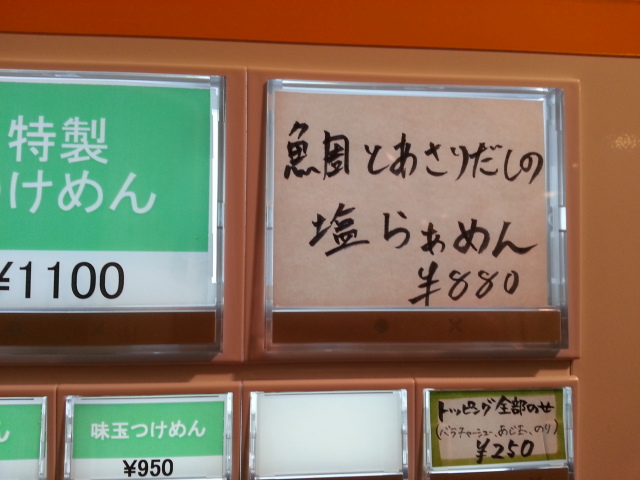 特製
つけめん
¥1100
鯛とあさりだしの
塩らぁめん
¥880
ん
味玉つけめん
¥950
トッピング全部のせ
(バラチャーシュー、あじ玉、のり)
¥250